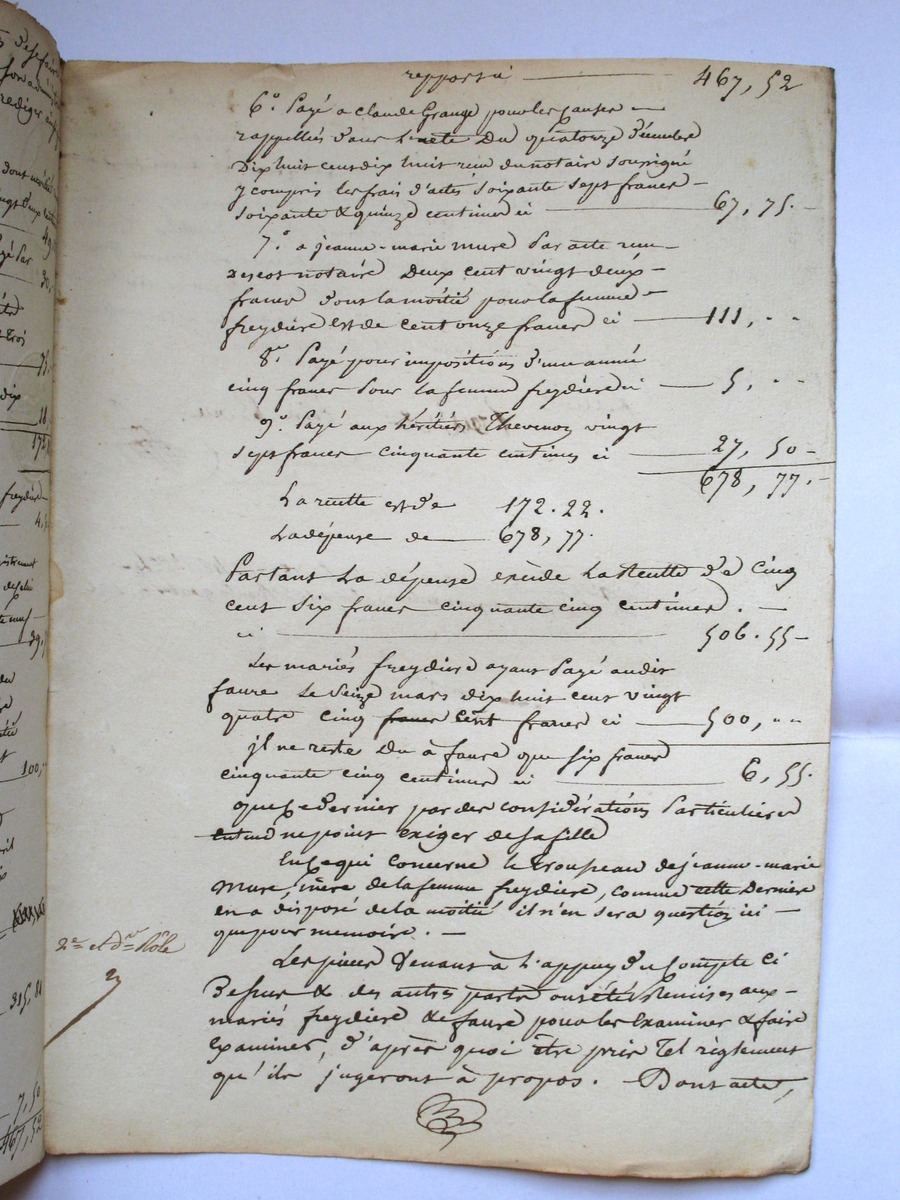 rapporté 467, 52
6.º Payé a Claude Grange pour les Causes
rappellées dans L'acte Du quatorze Décembre
Dix huit cent dix huit reçu du notaire soussigné
y compris les frais d'actes soixante sept francs
soixante & quinze centimes ci 67, 75.
7.º a jeanne-marie Mure Par acte reçu
notaire Deux cent vingt deux
francs dont la moitié pour la femme
freydiere est de cent onze francs ci 111, " "
8.º Payé pour impositions d'une année
cinq francs Pour la femme freydiere ci 5, " "
9.º Payé aux héritiers Thevenon vingt
sept francs cinquante centimes ci 27, 50
678, 77.
La recette est de 172. 22.
La dépense de 678, 77.
Partant La dépense excède La Recette de Cinq
cent Six francs cinquante cinq centimes.
ci 506. 55
Les mariés freydiere ayant Payé audit
faure Le Seize mars dix huit cent vingt
quatre cinq francs cent francs ci 500, " "
jl ne reste Du à faure que six francs
cinquante cinq centimes ci 6, 55.
que Ce dernier par des considérations Particulieres
entend ne point exiger de sa fille
En Ce qui Concerne le trousseau de jeanne-marie
Mure, mère de la femme freydiere, comme cette Derniere
en a disposé de la moitié il n'en sera question ici
que pour memoire.
Les pieces Venant à L'appuy du Compte Ci
Dessus & des autres parts ont été Remises aux
mariés freydiere & faure pour les Examiner & faire
Examiner, d'après quoi être pris Tel règlement
qu'ils jugeront à propos. Dont acte,
2.e et d.er Rôle
49
30,
dix
18
172
freydiere
4,
39,
100,
315, 81
7, 50
467, 52